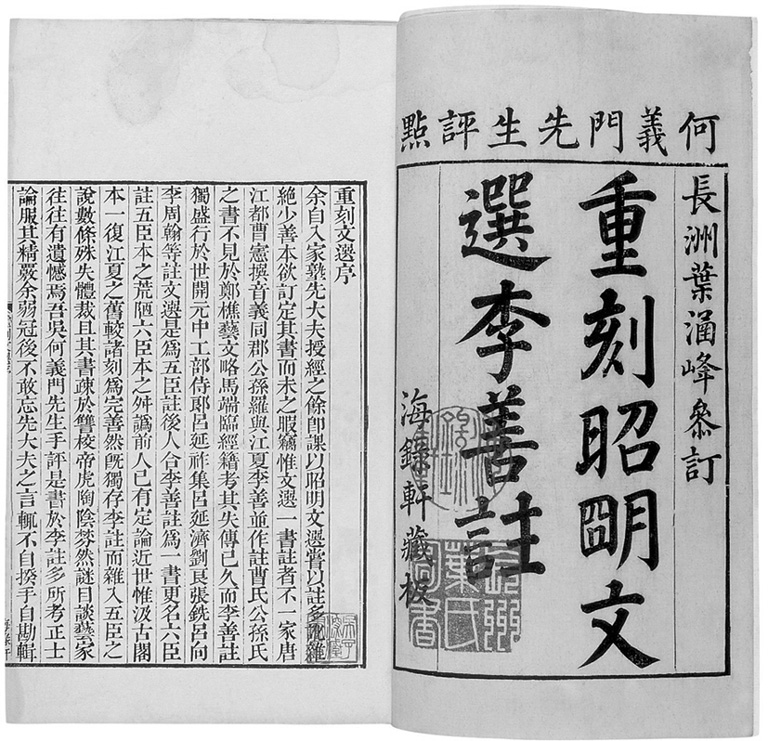 何義門先生評點
長洲葉涵峰參訂
重刻昭明文
選李善註
海錄軒藏板
重刻文選序
余自入家塾先大夫授經之餘卽課以昭明文選嘗以註多訛雜
絶少善本欲訂定其書而未之暇竊惟文選一書註者不一家唐
江都曹憲撰音義同郡公孫羅與江夏李善並作註曹氏公孫氏
之書不見於鄭樵藝文略馬端臨經籍考其失傳已久而李善註
獨盛行於世開元中工部侍郎呂延祚集呂延濟劉良張銑呂向
李周翰等註文選是爲五臣註後人合李善註爲一書更名六臣
註五臣本之荒陋六臣本之舛譌前人已有定論近世惟汲古閣
本一復江夏之舊較諸刻爲完善然旣獨存李註而雜入五臣之
說數條殊失體裁且其書疎於讐校帝虎陶陰棼然謎目談藝家
往往有遺憾焉吾吳何義門先生手評是書於李註多所考正士
論服其精嚴余弱冠後不敢忘先大夫之言輒不自揆手自勘輯